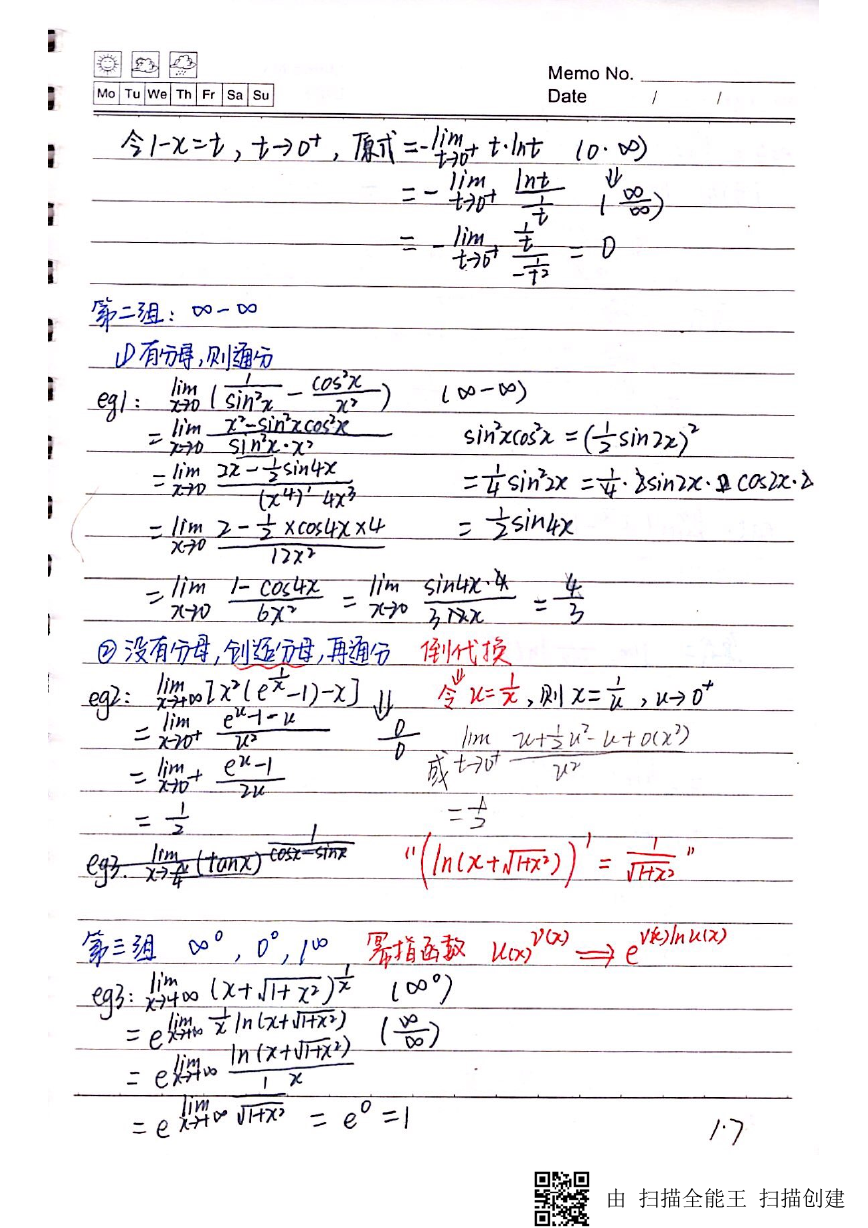 Memo No.
Mo Tu We Th Fr Sa Su
Date / /
令1-x=t, t→0⁺, 原式=-lim t→0⁺ t·lnt (0·∞)
= -lim t→0⁺ lnt / (1/t) ⇓ (∞/∞)
= -lim t→0⁺ (1/t) / (-1/t²) = 0
第二组: ∞-∞
① 有分母,则通分
eg1: lim x→0 (1/sin²x - cos²x/x²) (∞-∞)
= lim x→0 (x²-sin²xcos²x) / (sin²x·x²) sin²xcos²x = (1/2 sin2x)²
= lim x→0 (2x - 1/2 sin4x) / ((x⁴)' 4x³) = 1/4 sin²2x = 1/4 · 2sin2x · cos2x·2
= lim x→0 (2 - 1/2 ×cos4x×4) / 12x² = 1/2 sin4x
= lim x→0 (1-cos4x) / 6x² = lim x→0 (sin4x·4) / 12x = 4/3
② 没有分母,创造分母,再通分 倒代换
eg2: lim x→+∞ [x²(e^(1/x)-1)-x] ⇓ 令 u=1/x, 则 x=1/u, u→0⁺
= lim x→0⁺ (e^u-1-u) / u² 0/0 或 lim t→0⁺ (u+1/2u²-u+o(x²)) / u²
= lim x→0⁺ (e^u-1) / 2u
= 1/2 = 1/2
eg3. lim x→π/4 (tanx)^(1/(cosx-sinx)) "(ln(x+√(1+x²)))' = 1/√(1+x²)"
第三组 ∞⁰, 0⁰, 1^∞ 幂指函数 u(x)^v(x) ⇒ e^(v(x)lnu(x))
eg3: lim x→+∞ (x+√(1+x²))^(1/x) (∞⁰)
= e^(lim x→+∞ 1/x ln(x+√(1+x²))) (∞/∞)
= e^(lim x→+∞ ln(x+√(1+x²)) / x)
= e^(lim x→+∞ 1/√(1+x²)) = e⁰ = 1
1.7
由 扫描全能王 扫描创建